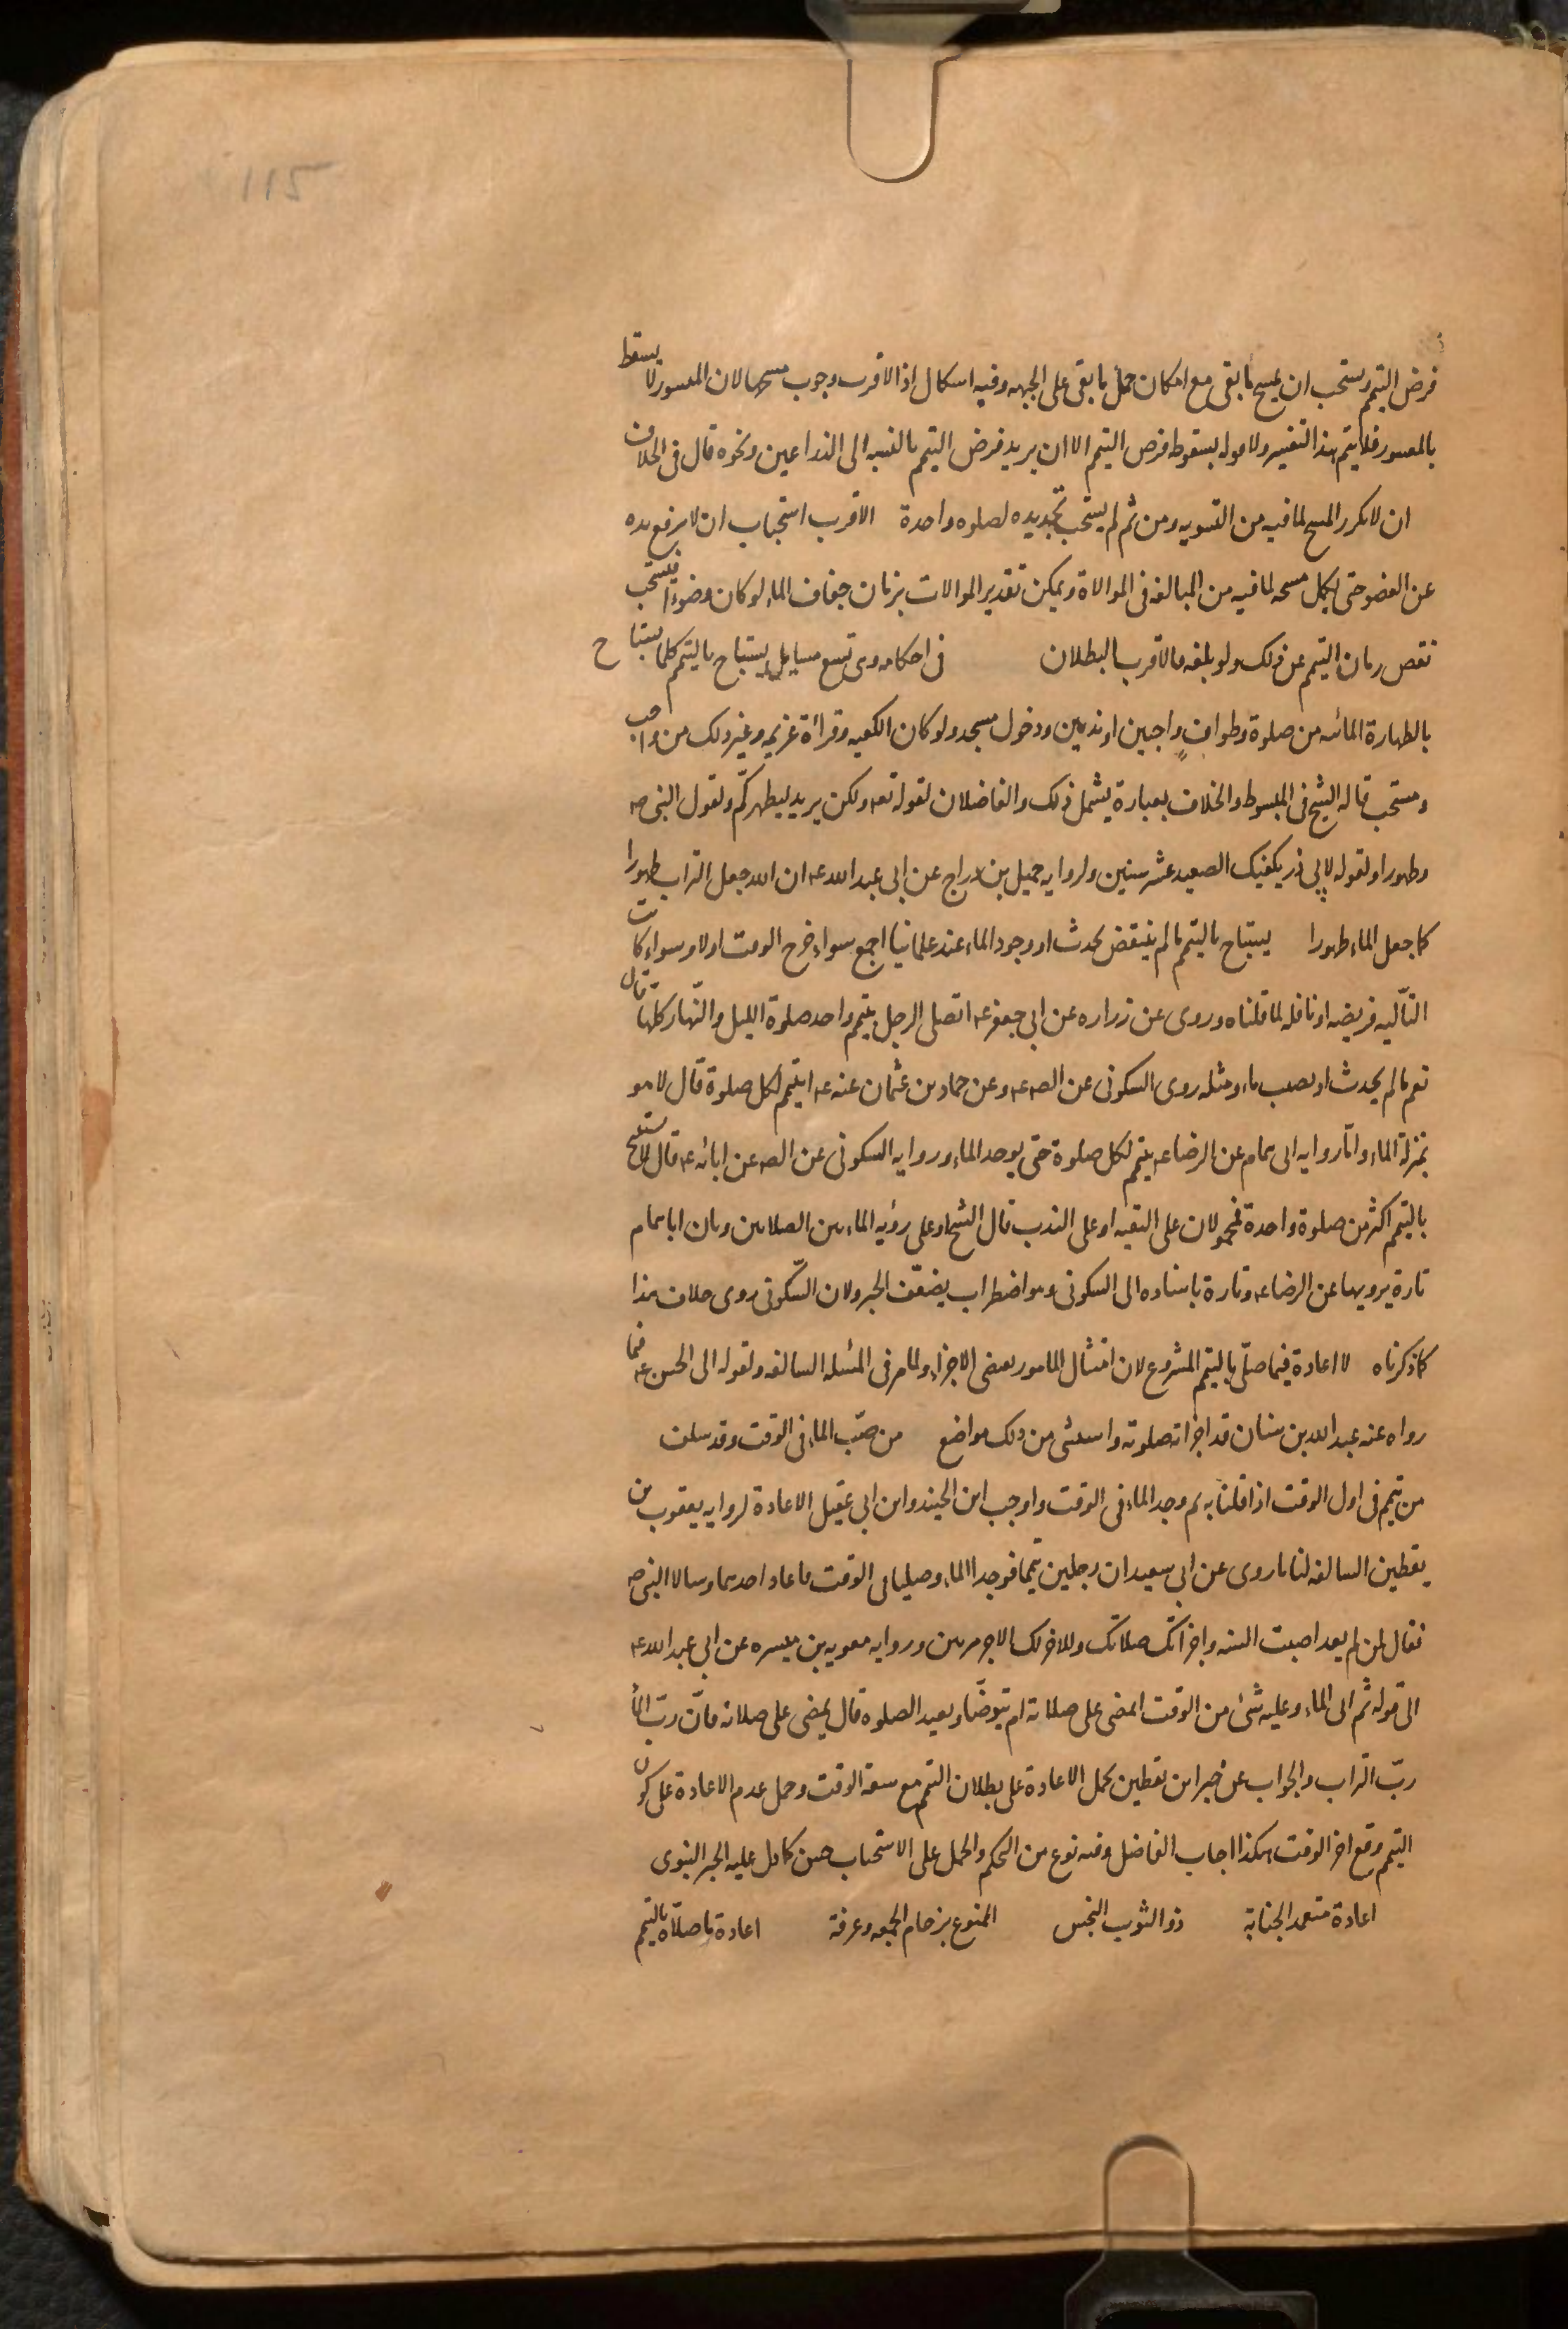 115
فرض التيمم ويستحب ان يمسح ما بقى مع امكان حمل ما بقى على الجبهه وفيه اشكال اذ الاقرب وجوب مسحها لان الميسور لا يسقط
بالمعسور فلا يتم هذا التفسير ولا قوله بسقوط فرض التيمم الا ان يريد فرض التيمم بالنسبه الى الذراعين ونحوه قال فى الخلاف
ان لا يكرر المسح لما فيه من التشويه ومن ثم لم يستحب تجديده لصلوه واحدة الاقرب استحباب ان لا يرفع يده
عن العضو حتى يكمل مسحه لما فيه من المبالغه فى الموالاة ويمكن تقدير الموالات بزمان جفاف الماء لو كان وضوءا فيستحب
نقص زمان التيمم عن ذلك ولو بلغه فالاقرب البطلان فى احكامه وهى تسع مسايل يستباح بالتيمم كلما يستباح
بالطهارة المائيه من صلوة وطواف واجبين او ندبين ودخول مسجد ولو كان الكعبه وقرائة عزيمه وغير ذلك من واجب
ومستحب قاله الشيخ فى المبسوط والخلاف بعبارة يشمل ذلك والفاضلان لقوله تعه ولكن يريد ليطهركم ولقول النبى صه
وطهورا ولقوله لابى ذر يكفيك الصعيد عشر سنين ولروايه جميل بن دراج عن ابى عبد الله عه ان الله جعل التراب طهورا
كما جعل الماء طهورا يستباح بالتيمم ما لم ينتقض بحدث او وجود الماء عند علمائنا اجمع سواء خرج الوقت اولا وسواء كانت
التاليه فريضه او نافله لما قلناه وروى عن زراره عن ابى جعفر عه اتصلى الرجل بتيمم واحد صلوة الليل والنهار كلها قال
نعم ما لم يحدث او يصب ماء ومثله روى السكونى عن الصه عه وعن حماد بن عثمان عنه عه ايتيمم لكل صلوة قال لا هو
بمنزلة الماء واما روايه ابى همام عن الرضا عه يتيمم لكل صلوة حتى يوجد الماء وروايه السكونى عن الصه عن ابائه عه قال لا يستمتع
بالتيمم اكثر من صلوة واحدة فمحمولان على التقيه او على الندب قال الشيخ او على رؤيه الماء بين الصلاتين وبان ابا همام
تارة يرويها عن الرضا عه وتارة باسناده الى السكونى وهو اضطراب يضعف الخبر ولان السكونى روى خلاف هذا
كما ذكرناه لا اعادة فيما صلى بالتيمم المشروع لان امتثال المامور يقتضى الاجزاء ولما مر فى المسئله السالفه ولقوله ابى الحسن عه فيما
رواه عنه عبد الله بن سنان قد اجزاته صلوته واستثنى من ذلك مواضع من صب الماء فى الوقت وقد سلف
من تيمم فى اول الوقت اذا قلنا به ثم وجد الماء فى الوقت واوجب ابن الجنيد وابن ابى عقيل الاعادة لروايه يعقوب بن
يقطين السالفه لنا ما روى عن ابى سعيد ان رجلين تيمما فوجدا الماء وصليا فى الوقت فاعاد احدهما وسالا النبى صه
فقال لمن لم يعد اصبت السنه واجزاتك صلاتك وللاخر لك الاجر مرتين وروايه معويه بن ميسره عن ابى عبد الله عه
الى قوله ثم اتى الماء وعليه شئ من الوقت ايمضى على صلاته ام يتوضا ويعيد الصلوه قال يمضى على صلاته فان رب الماء
رب التراب والجواب عن خبر ابن يقطين بحمل الاعادة على بطلان التيمم مع سعة الوقت وحمل عدم الاعادة على كون
التيمم وقع اخر الوقت هكذا اجاب الفاضل وفيه نوع من التحكم والحمل على الاستحباب حسن كما دل عليه الخبر النبوى
اعادة متعمد الجنابة ذو الثوب النجس الممنوع بزحام الجمعه وعرفة اعادة ما صلاه بالتيمم